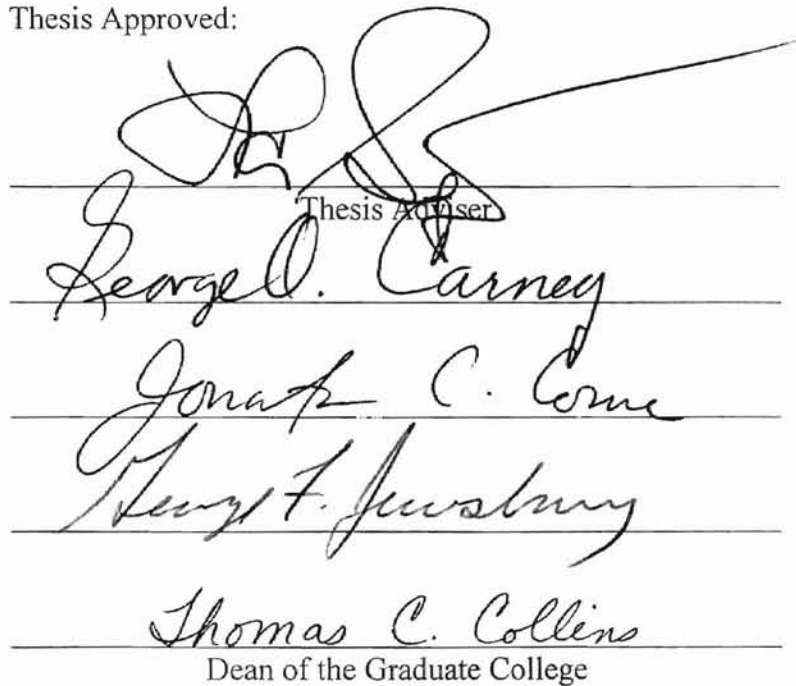 Thesis Approved:
Thesis Adviser
George O. Carney
C.
George F. Jewsbury
Thomas C. Collins
Dean of the Graduate College